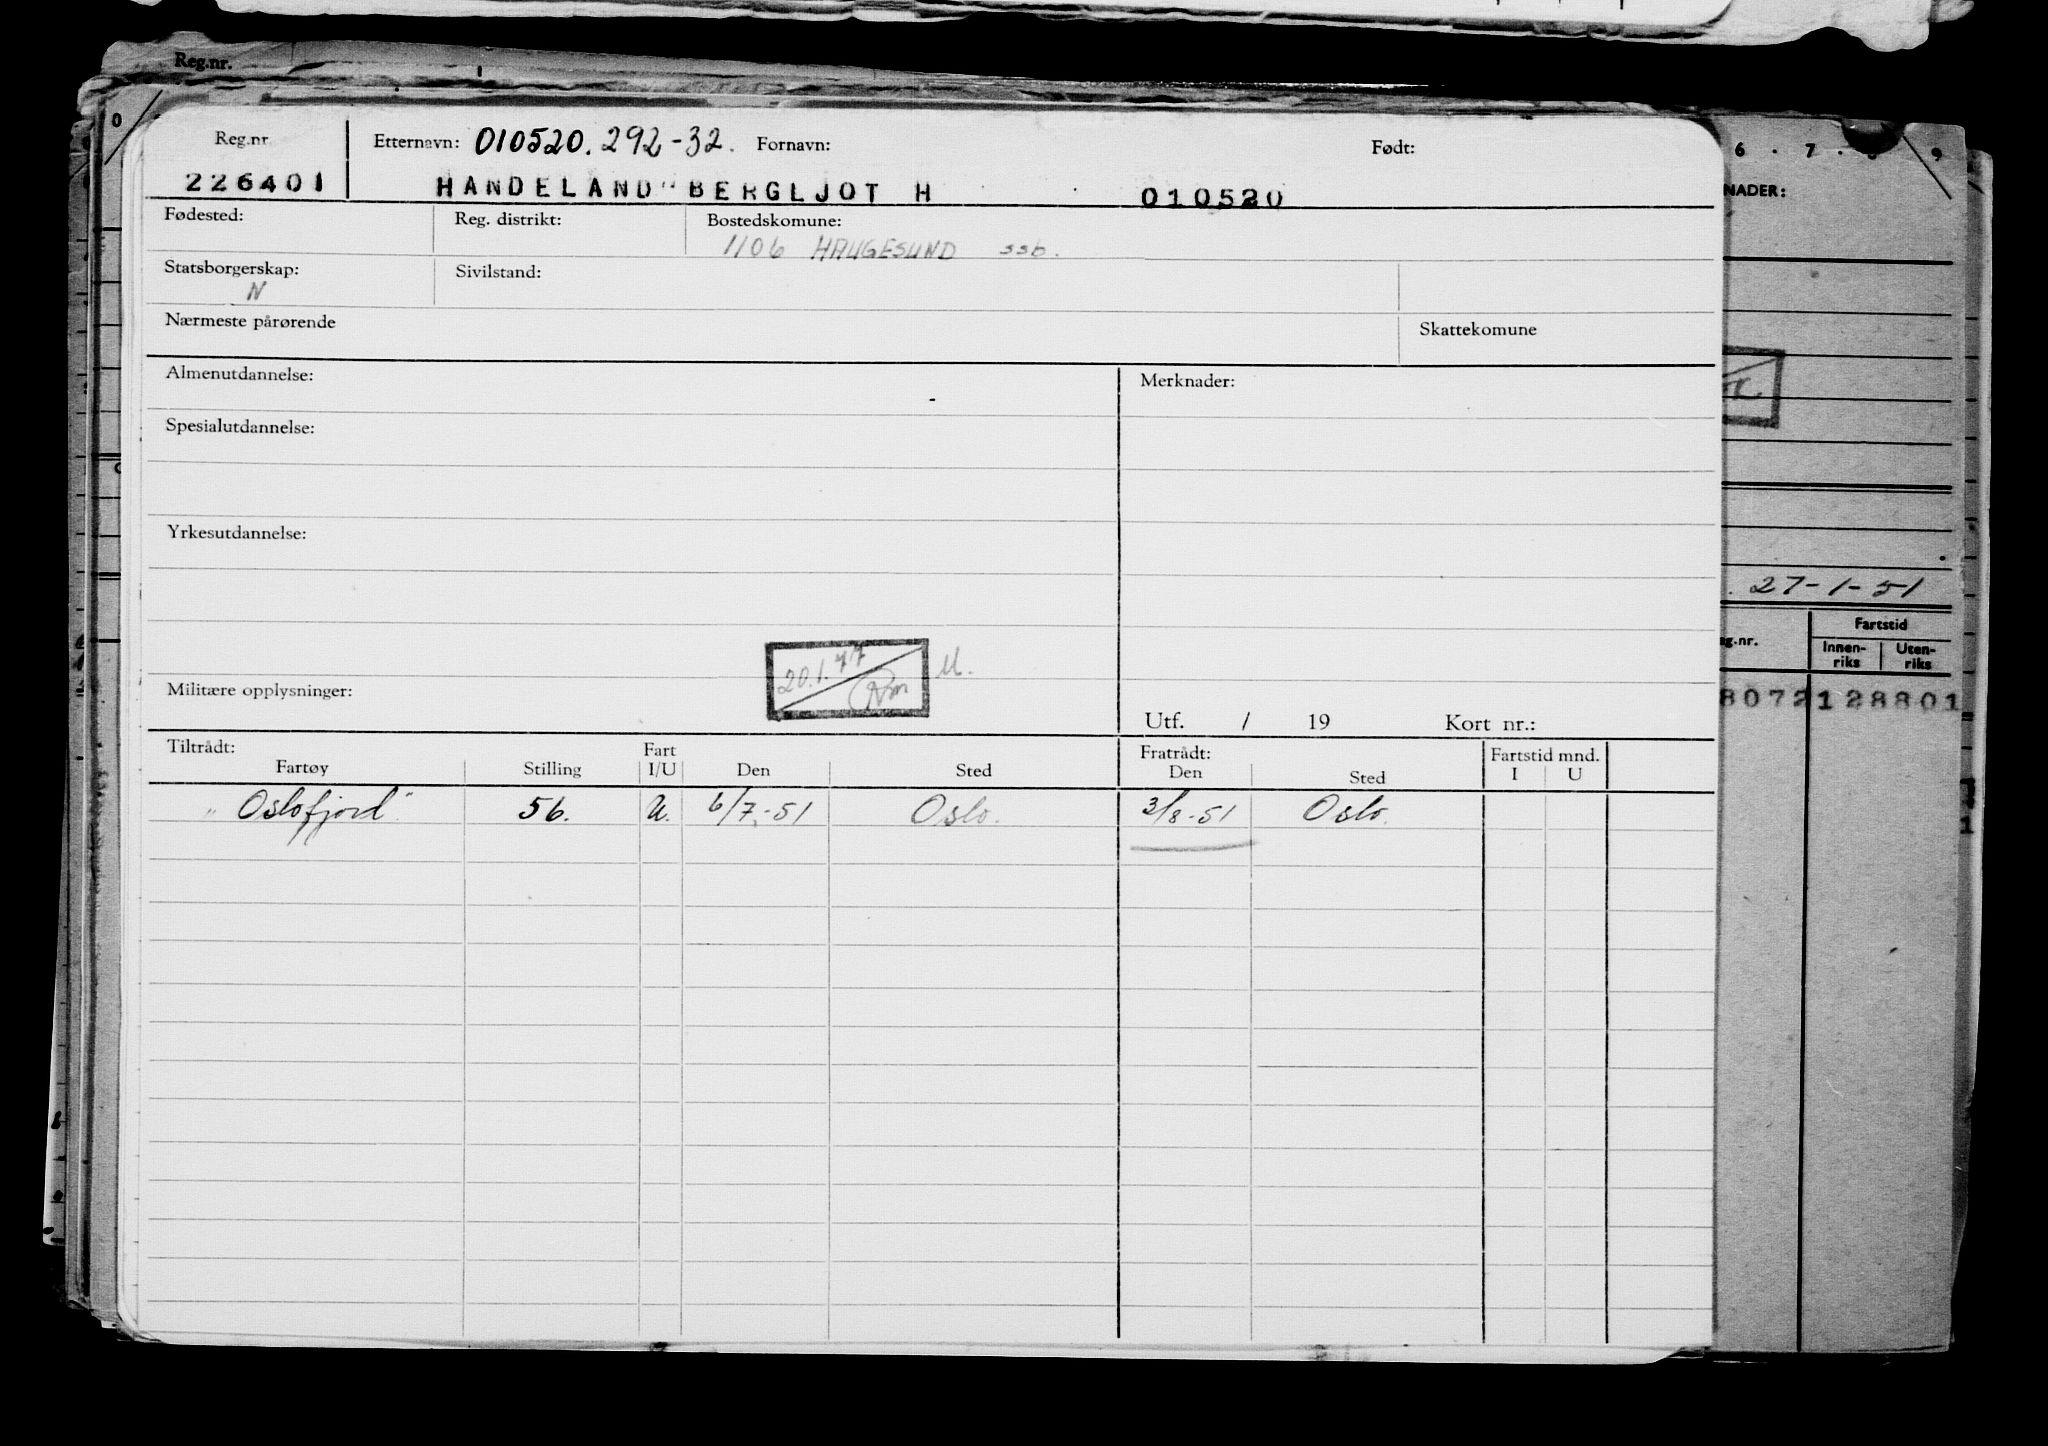 Reg.nr.
0
Reg.nr
Etternavn: 010520.292-32. Fornavn:
Født:
226401
HANDELAND BERGLJOT H
010520
Fødested:
Reg. distrikt:
Bostedskomune:
1106 HAUGESUND ssb.
Statsborgerskap:
N
Sivilstand:
Nærmeste pårørende
Skattekomune
Almenutdannelse:
Merknader:
Spesialutdannelse:
Yrkesutdannelse:
20.1.77
M.
Militære opplysninger:
Utf. / 19 Kort nr.:
Tiltrådt:
Fartøy
Stilling
Fart
I/U
Den
Sted
Fratrådt:
Den
Sted
Fartstid mnd.
I U
"Oslofjord" 56. U. 6/7.-51 Oslo. 3/8-51 Oslo.
6 . 7 . 8 . 9
NADER:
27-1-51
ag.nr.
Fartstid
Innen-
riks
Uten-
riks
8072 128801